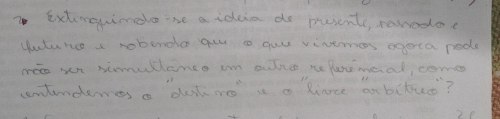 Extinguindo-se a ideia de presente, passado e
futuro e sabendo que o que vivemos agora pode
não ser simultaneo em outro referencial, como
entendemos o "destino" e o "livre "arbítreo"?